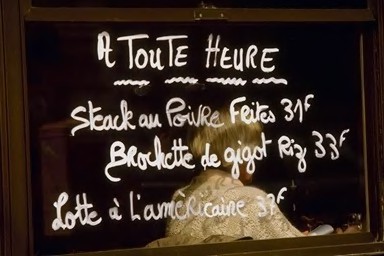 A TouTE HEURE
Steack au Poivre Frites 31F
Brochette de gigot Riz 33F
Lotte à L'américaine 37F